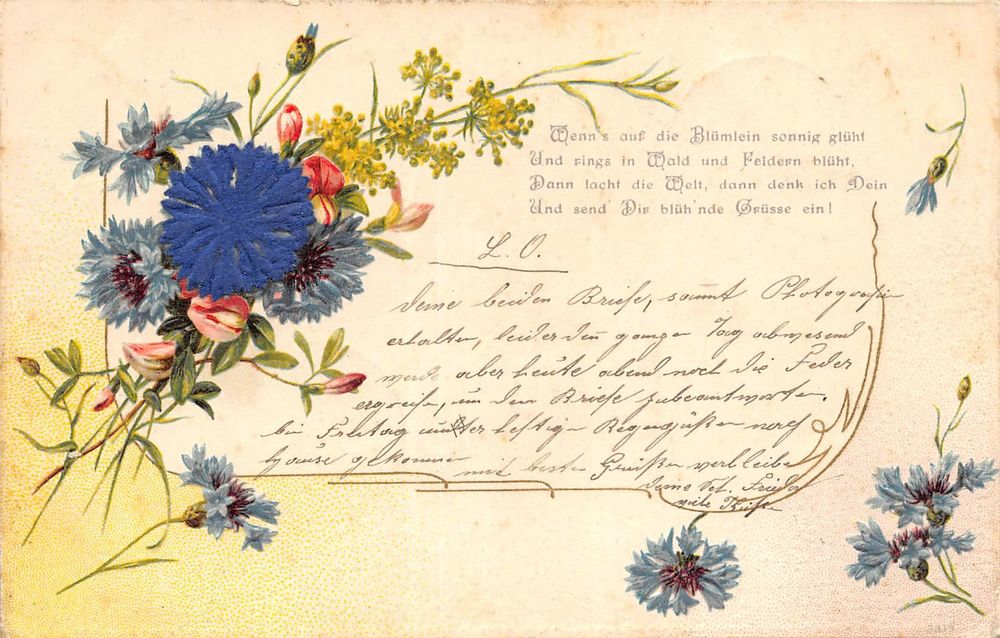 Wenn's auf die Blümlein sonnig glüht
Und rings in Wald und Feldern blüht,
Dann lacht die Welt, dann denk ich Dein
Und send' Dir blüh'nde Grüsse ein!
L. O.
deine beiden Briefe, sammt Photografie
erhalten, leider den ganzen Tag abwesend
werde aber heute abend noch die Feder
ergreifen, um den Briefe zubeantworten.
bin Freitag unter heftigen Regengüßen nach
hause gekommen mit besten Grüßen verbleibe
deine
viele